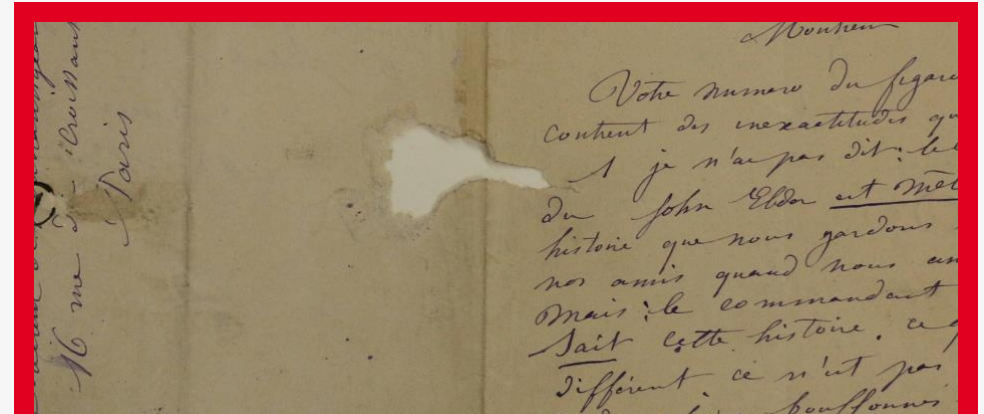 16 rue du Croissant
Paris
Monsieur
Votre numero du figaro
contient des inexactitudes qu
1 je n'ai pas dit: le
du John Elder est mêl
histoire que nous gardons
nos amis quand nous en
Mais: le commandant
Sait cette histoire, ce q
différent ce n'est pas